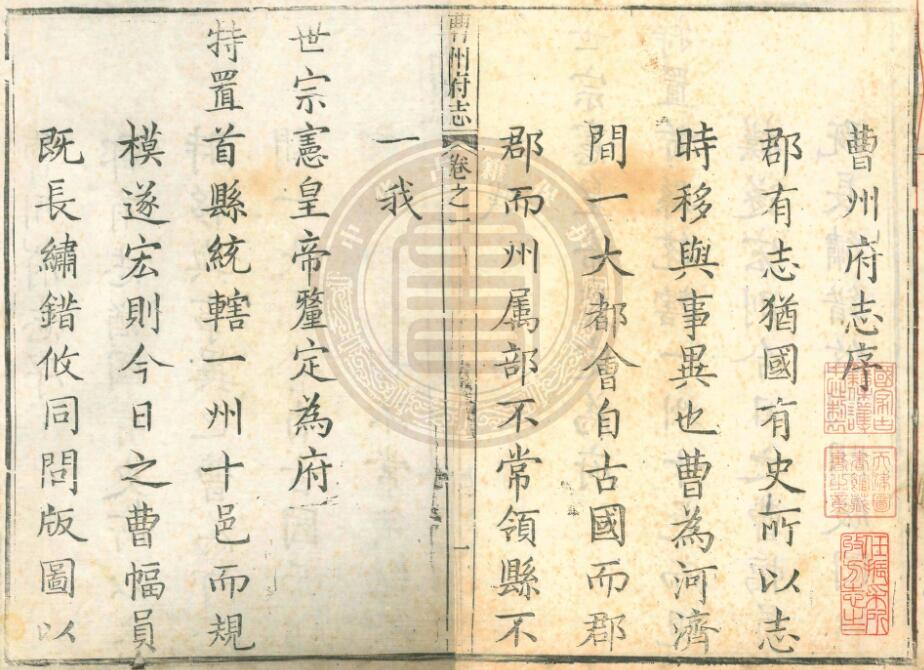 曹州府志序
郡有志猶國有史所以志
時移與事異也曹為河濟
間一大都會自古國而郡
郡而州属部不常領縣不
曹州府志
卷之一
一
一我
世宗憲皇帝釐定為府
特置首縣統轄一州十邑而規
模遂宏則今日之曹幅員
既長繡錯攸同問版圖以
任振采所
收方志之